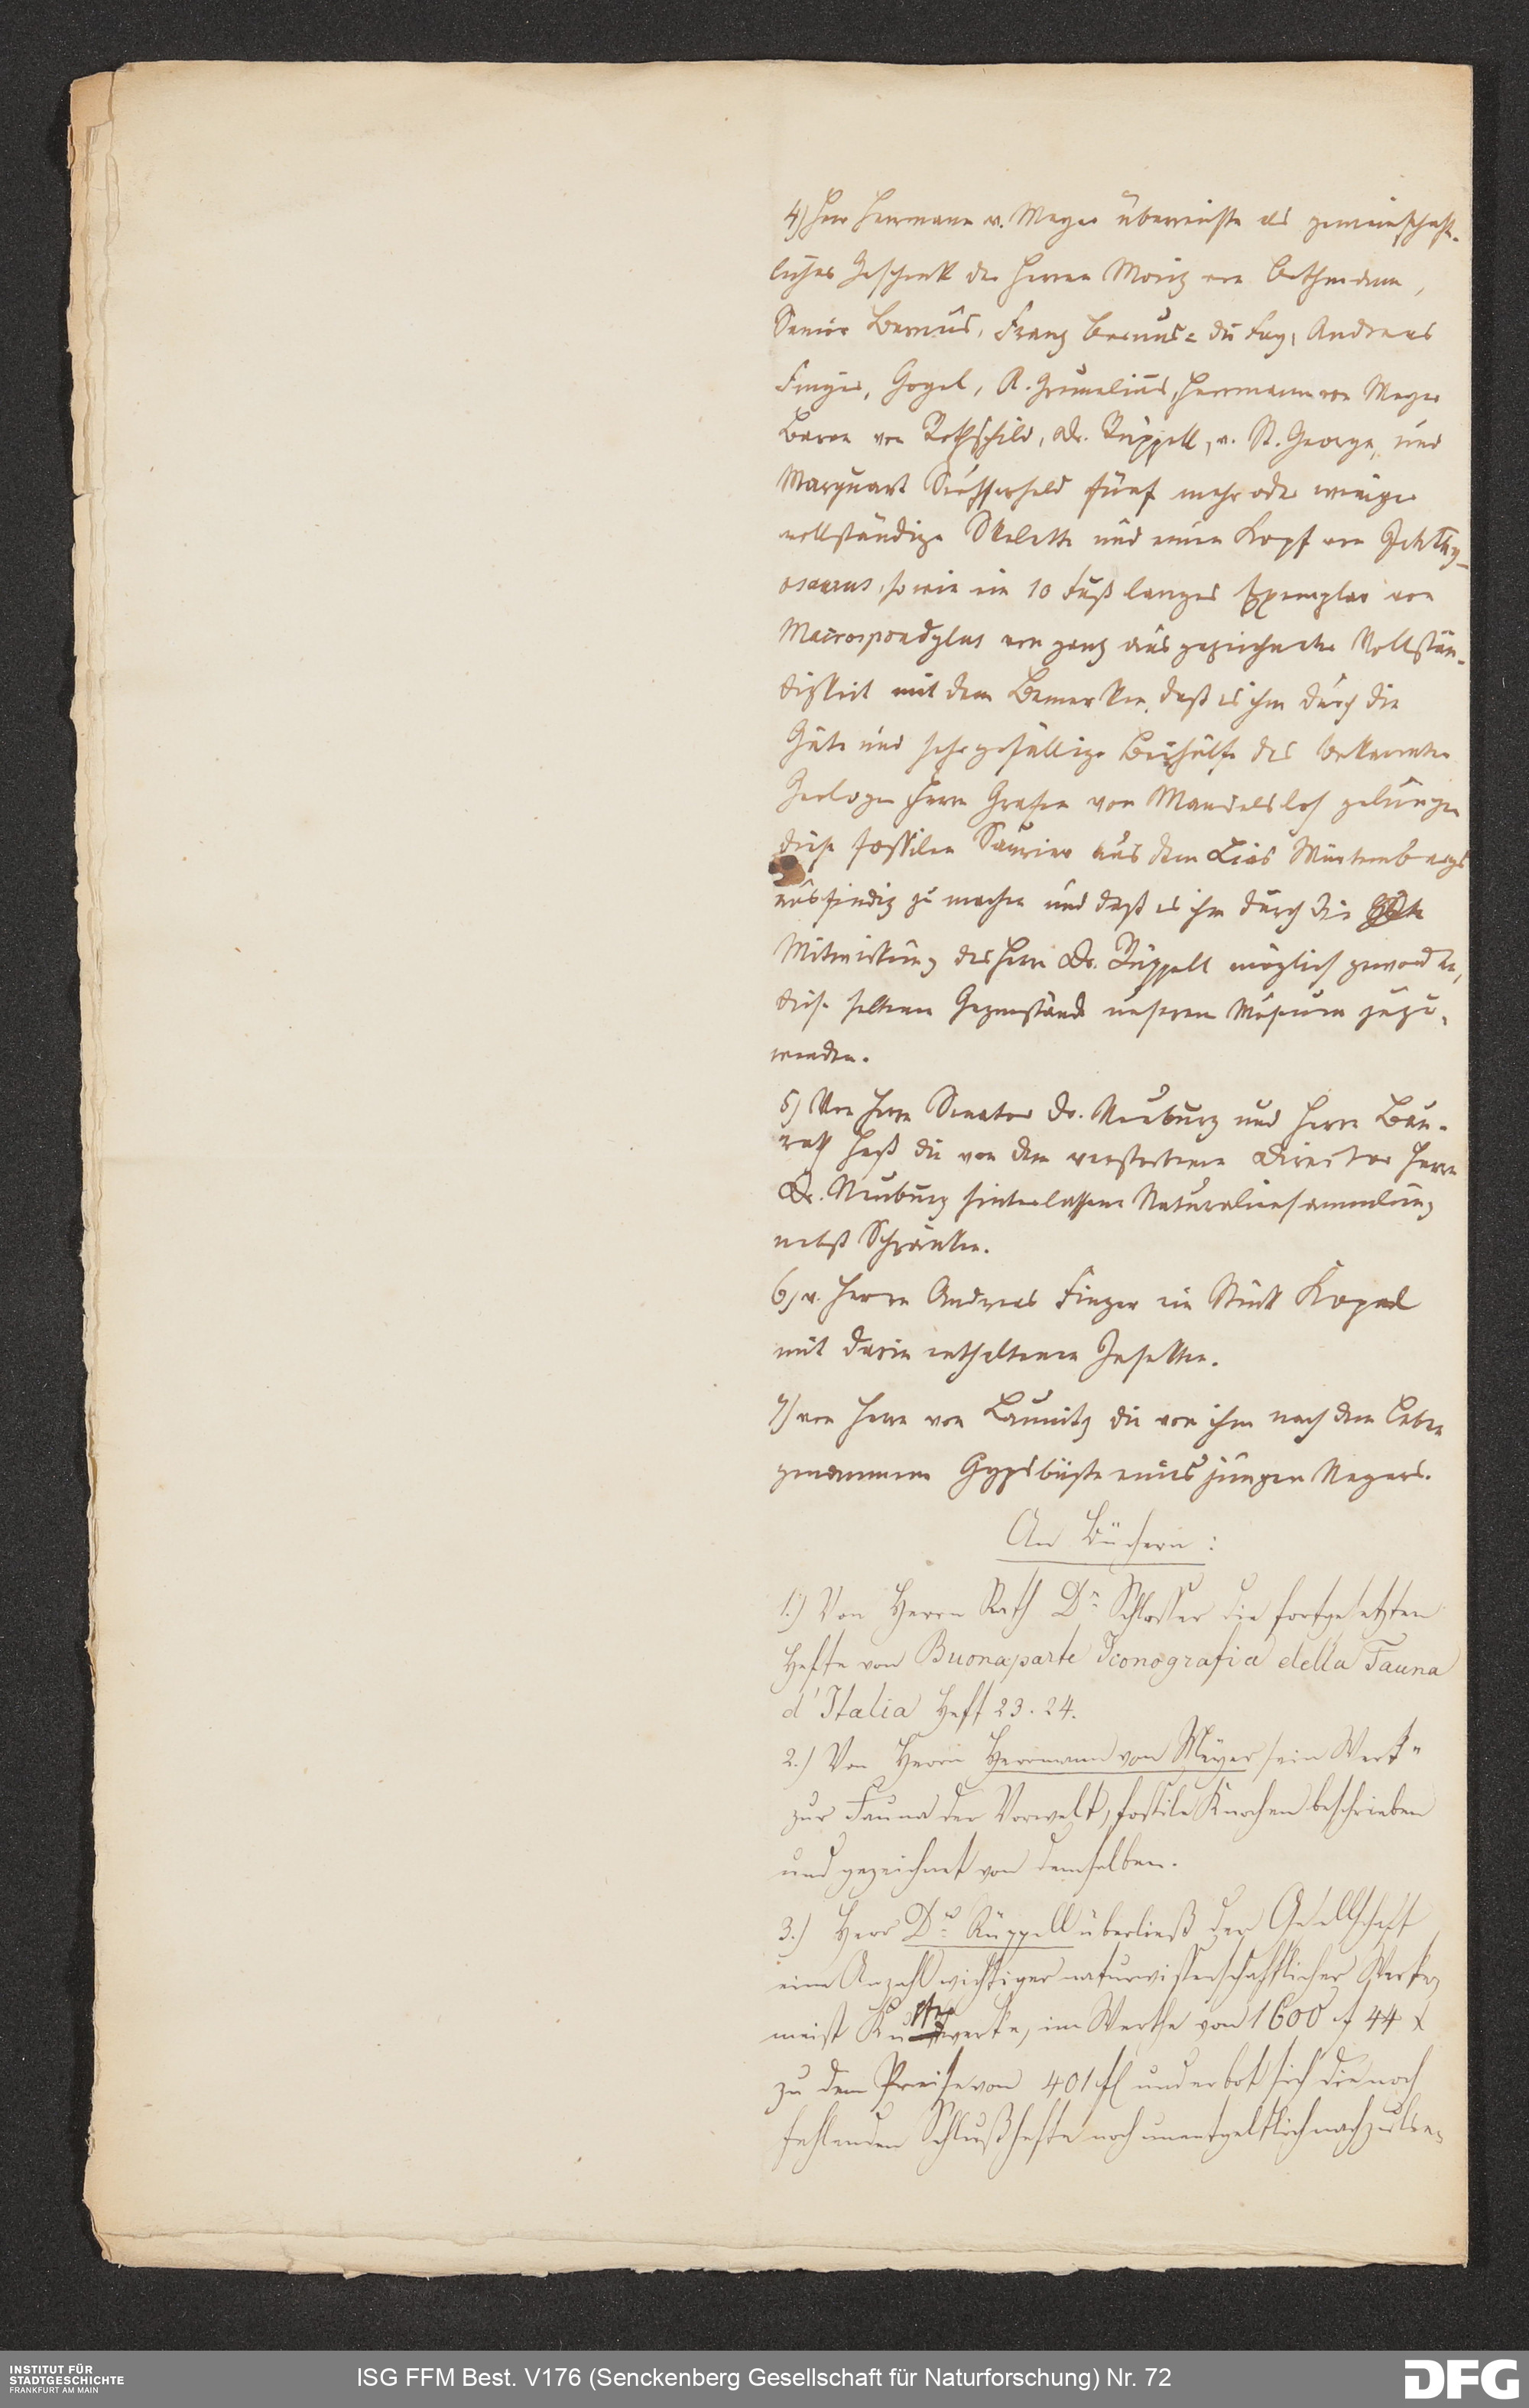 4) Herr Herrmann v. Meyer überreichte als gemeinschaft-
liches Geschenk der Herren Moritz von Bethmann,
Senior Bernus, Franz Bernus = du Fay, Andreas
Finger, Gogel, A. Grunelius, Herrmann von Meyer
Baron von Rothschild, Dr. Rüppell, v. St. George, und
Marquart Seufferheld fünf mehr oder weniger
vollständige Skelette und einen Kopf von Ichthy-
osaurus, so wie ein 10 Fuß langes Exemplar von
Macrospondylus von ganz ausgezeichneter Vollstän-
digkeit mit dem Bemerken, daß es ihm durch die
Güte und sehr gefällige Beihülfe des bekannten
Geologen Herrn Grafen von Mandelsloh gelungen
diese fossilen Saurier aus dem Lias Würtembergs
ausfindig zu machen und daß es ihm durch die
Mitwirkung des Herrn Dr. Rüppell möglich geworden,
diese seltenen Gegenstände unserem Museum zuzu-
wenden.
5) Von Herrn Senator Dr. Neuburg und Herrn Bau-
rath Heß die von dem verstorbenen Director Herrn
Dr. Neuburg hinterlassene Naturaliensammlung
nebst Schränken.
6) v. Herrn Andreas Finger ein Stück Kopal
mit darin enthaltenen Insekten.
7) von Herrn von Launitz die von ihm nach dem Leben
genommene Gypsbüste eines jungen Negers.
An Büchern:
1.) Von Herrn Rath Dr. Schlosser die fortgesetzten
Hefte von Buonaparte Iconografia della Fauna
d'Italia Heft 23. 24.
2.) Von Herrn Herrmann von Meyer sein Werk "
zur Fauna der Vorwelt, fossile Knochen beschrieben
und gezeichnet von demselben.
3.) Herr Dr. Rüppell überließ der Gesellschaft
eine Anzahl wichtiger naturwissenschaftlicher Werke,
meist Kupferwerke, im Werthe von 1600 f 44 x
zu dem Preise von 401 fl und erbot sich die noch
fehlenden Schlußhefte noch unentgeltlich nachzulie-
INSTITUT FÜR
STADTGESCHICHTE
FRANKFURT AM MAIN
ISG FFM Best. V176 (Senckenberg Gesellschaft für Naturforschung) Nr. 72
DFG